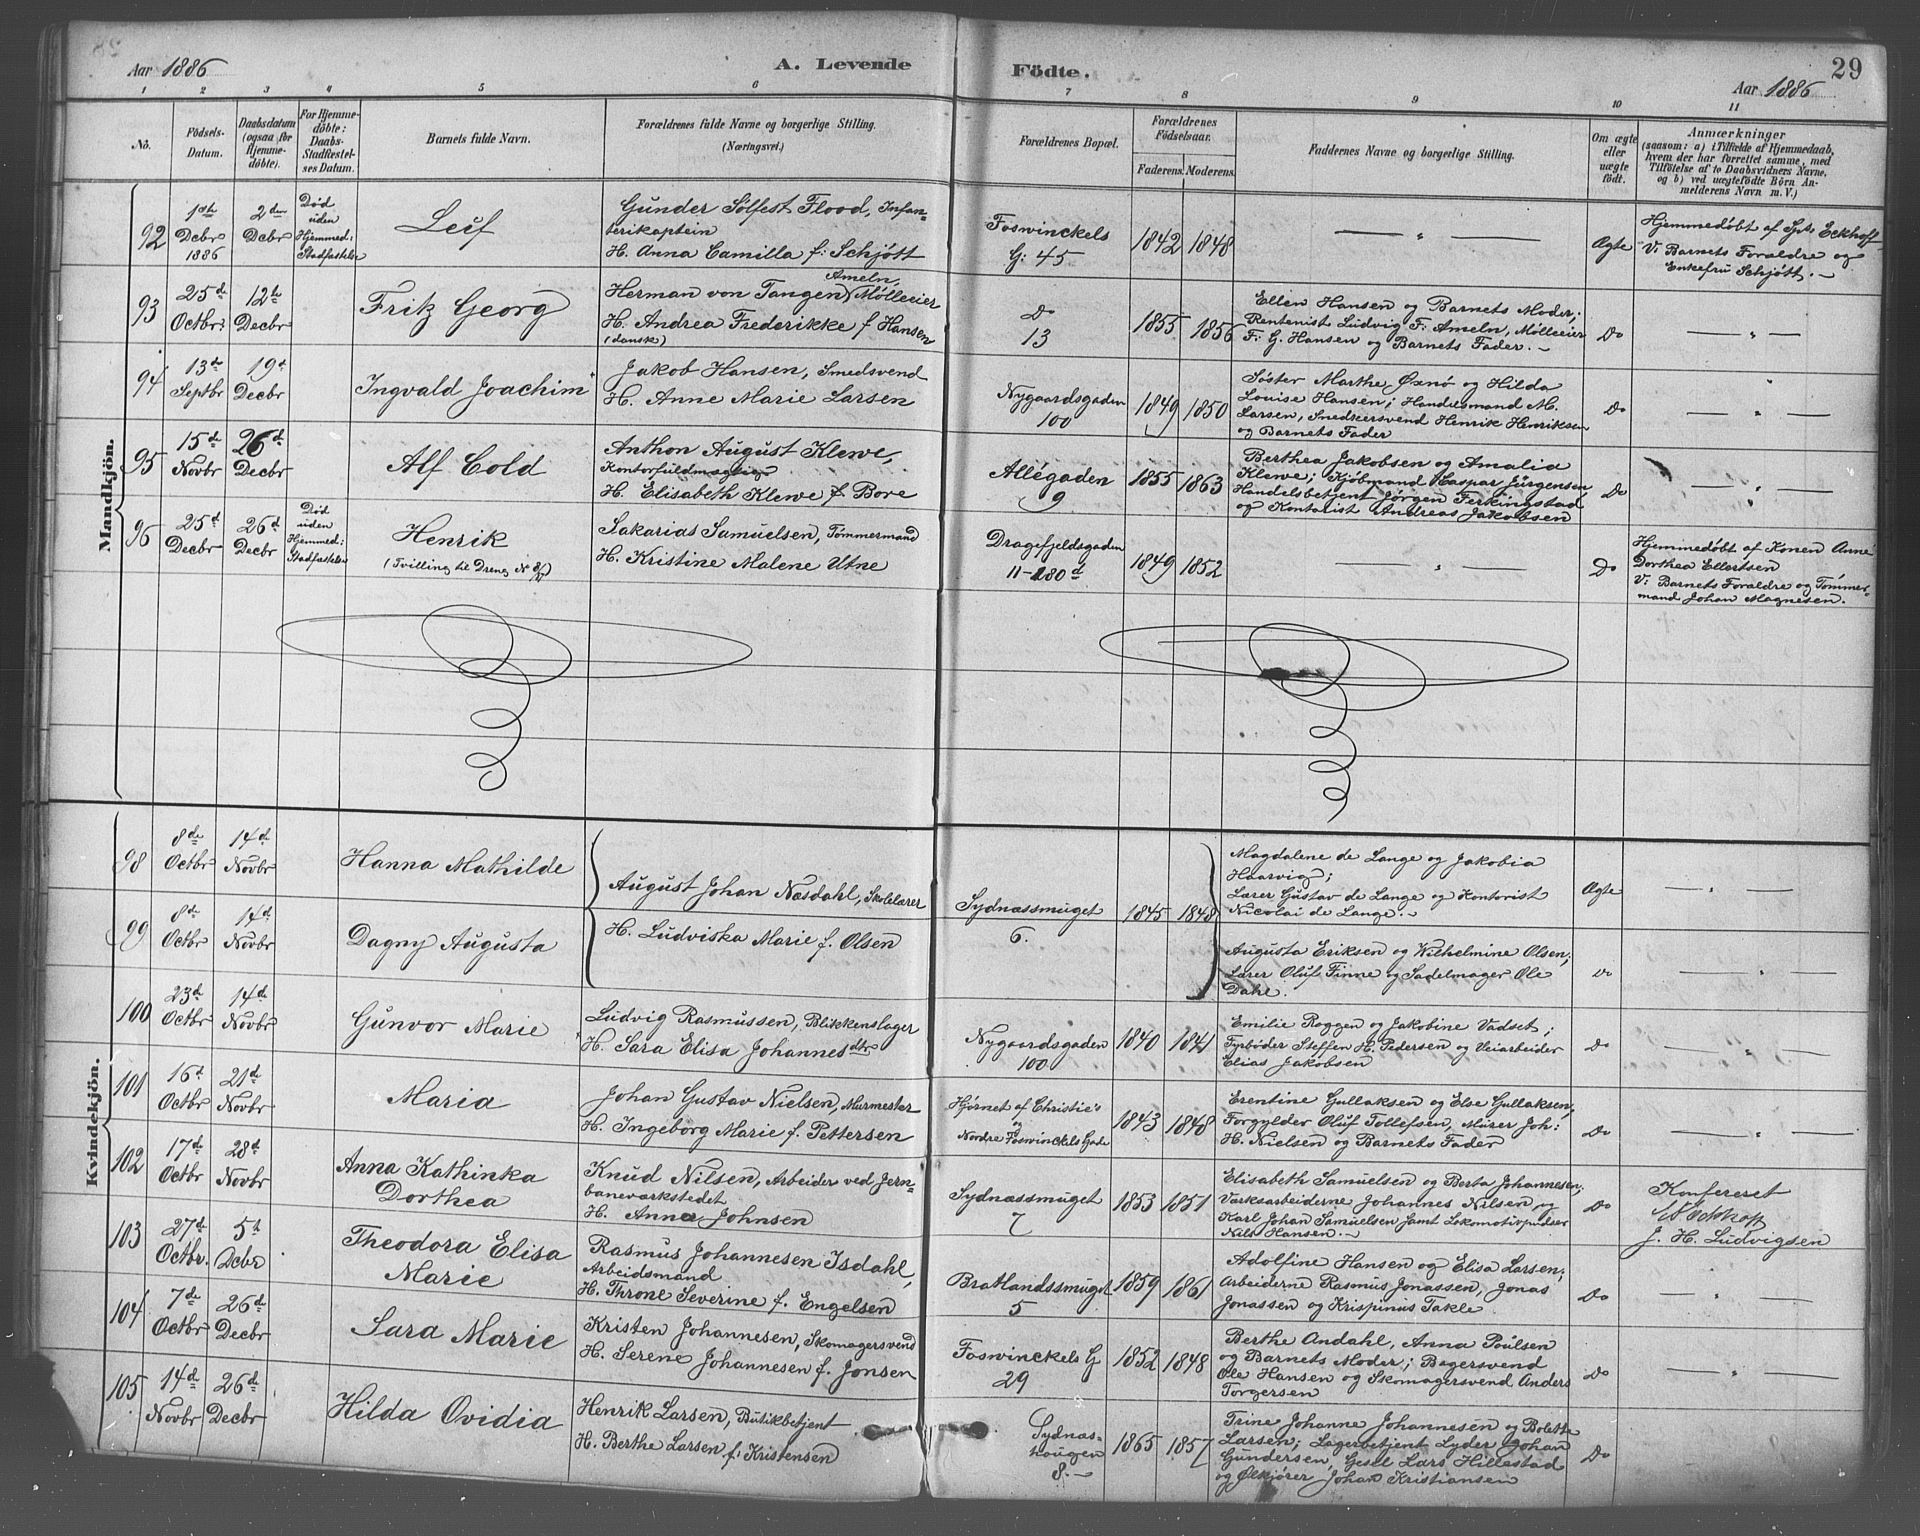 Aar 1886
A. Levende
Födte.
29
Aar 1886
1 2 3 4 5 6 7 8 9 10 11
No.
Födsels-
Datum.
Daabsdatum
(ogsaa for
Hjemme-
döbte).
For Hjemme-
döbte:
Daabs-
Stadfæstel-
ses Datum.
Barnets fulde Navn.
Forældrenes fulde Navne og borgerlige Stilling.
(Næringsvei.)
Forældrenes Bopæl.
Forældrenes
Födselsaar.
Faderens. Moderens.
Faddernes Navne og borgerlige Stilling.
Om ægte
eller
uægte
födt.
Anmærkninger
(saasom: a) i Tilfælde af Hjemmedaab,
hvem der har forrettet samme, med
Tilföielse af to Daabsvidners Navne,
og b) ved uægtefödte Börn An-
melderens Navn m. V.)
Mandkjön.
92
1ste
Decbr
1886
2den
Decbr
Död
uden
Hjemmed:
Stadfæstelse
Leif
Gunder Sølfest Flood, Infan-
terikaptein
H. Anna Camilla f: Schjött
Foswinckels
G: 45
1842 1848
— " —
Ægte
Hjemmedøbt af Spts Eckhoff
V: Barnets Forældre og
Enkefru Schjött. -
93
25de
Octbr:
12te
Decbr
Fritz Georg
Ameln,
Herman von Tangen Mölleeier
H. Andrea Frederikke f Hansen
(dansk)
Do
13
1855 1856
Ellen Hansen og Barnets Moder;
Rentenist Ludvig F: Ameln, Mölleeier
F: G. Hansen og Barnets Fader. -
Do
— " —
94
13de
Septbr
19de
Decbr
Ingvald Joachim
Jakob Hansen, Smedsvend
H. Anne Marie Larsen
Nygaardsgaden
100
1849 1850
Söster Marthe Øxnö og Hilda
Louise Hansen; Handelsmand M.
Larsen, Smedsvend Henrik Henriksen
og Barnets Fader
Do
— " —
95
15de
Novbr
26de
Decbr
Alf Cold
Anthon August Klewe,
Kontorfuldmægtig
H. Elisabeth Klewe f. Bore
Allégaden
9
1855 1863
Berthea Jakobsen og Amalia
Klewe; Kjöbmand Kaspar Jürgensen,
Handelsbetjent Jörgen Ferkingstad
og Kontorist Andreas Jakobsen
Do
— " —
96
25de
Decbr
26de
Decbr
Död
uden
Hjemmed:
Stadfæstelse
Henrik
(Tvilling til Dreng No 8/87)
Sakarias Samuelsen, Tömmermand
H. Kristine Malene Utne
Dragefjeldsgaden
11-180d
1849 1852
— " —
Do
Hjemmedøbt af Konen Anne
Dorthea Ellertsen
V: Barnets Forældre og Tömmer-
mand Johan Magnesen.
Kvindekjön.
98
8de
Octbr
14de
Novbr
Hanna Mathilde
August Johan Næsdahl, Skolelærer
H. Ludviska Marie f. Olsen
Sydnæssmuget
6.
1845 1848
Magdalene de Lange og Jakobia
Haarvig;
Lærer Gustav de Lange og Kontorist
Nicolai de Lange. -
Ægte
— " —
99
8de
Octbr
14de
Novbr
Dagny Augusta
Augusta Eriksen og Wilhelmine Olsen;
Lærer Oluf Finne og Sadelmager Ole
Dahl.
Do
— " —
100
23de
Octbr
14de
Novbr
Gunvor Marie
Ludvig Rasmussen, Blikkenslager
H. Sara Elisa Johannesdtr
Nygaardsgaden
100
1840 1841
Emilie Roggen og Jakobine Vadset;
Fyrböder Steffen H. Pedersen og Veiarbeider
Elias Jakobsen
Do
— " —
101
16de
Octbr
21de
Novbr
Maria
Johan Gustav Nielsen, Murmester
H. Ingeborg Marie f. Pettersen
Hjörnet af Christie's
og
Nordre Foswinckels Gade
1843 1848
Erentine Gullaksen og Else Gullaksen,
Forgylder Oluf Tollefsen, Murer Joh:
H. Nielsen og Barnets Fader
Do
— " —
102
17de
Octbr
28de
Novbr
Anna Kathinka
Dorthea
Knud Nilsen, Arbeider ved Jern-
baneværkstedet
H. Anna Johnsen
Sydnæssmuget
7
1853 1851
Elisabeth Samuelsen og Berta Johannesen;
Værksarbeiderne Johannes Nilsen og
Karl Johan Samuelsen samt Lokomotivpudser
Nils Hansen. -
Do
Konfereret
Eckhoff
J. H. Ludvigsen
103
27de
Octbr.
5te
Decbr
Theodora Elisa
Marie
Rasmus Johannesen Isdahl,
Arbeidsmand
H. Throne Severine f. Engelsen
Bratlandssmuget
5
1859 1861
Adolfine Hansen og Elisa Larsen;
Arbeiderne Rasmus Jonassen, Jonas
Jonassen og Krispinus Takle
Do
— " —
104
7de
Octbr
26de
Decbr
Sara Marie
Kristen Johannesen, Skomagersvend
H. Serene Johannesen f. Jonsen
Foswinckels G
29
1852 1848
Berthe Andahl, Anna Poulsen
og Barnets Moder; Bagersvend
Ole Hansen og Skomagersvend Anders
Torgersen
Do
— " —
105
14de
Novbr
26de
Decbr
Hilda Ovidia
Henrik Larsen, Butikbetjent
H. Berthe Larsen f: Kristensen
Sydnæs-
haugen
8. -
1865 1857
Trine Johanne Johannesen og Bolette
Larsen; Lagerbetjent Lyder Johan
Gundersen, Gesel Lars Hillestad
og Ølkjører Johan Kristiansen
Do